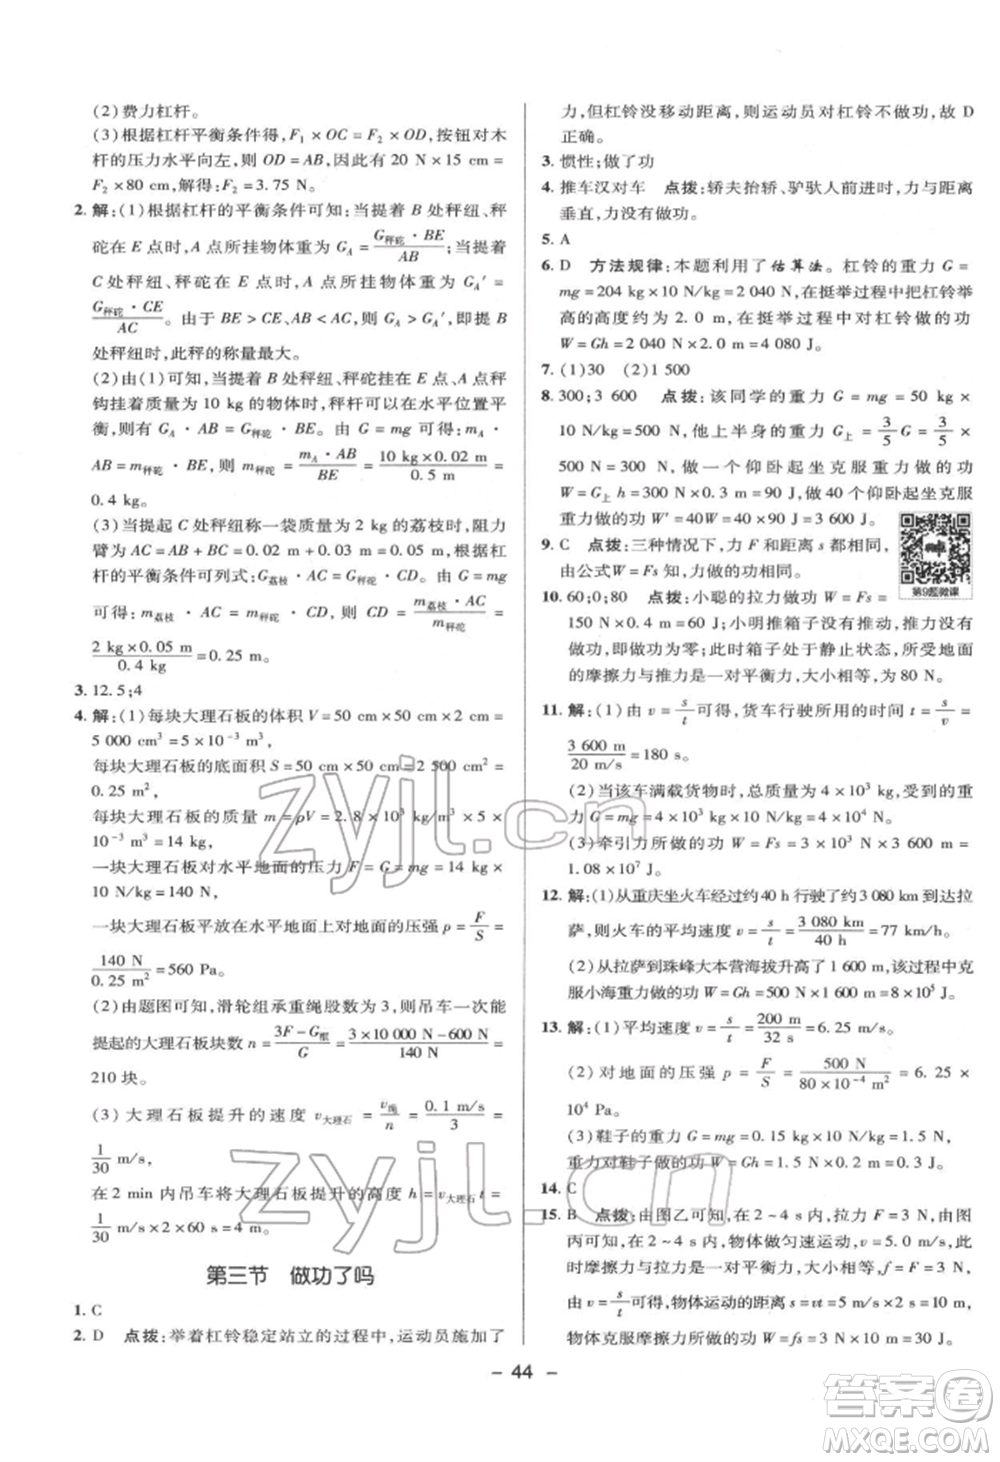 (2)费力杠杆。
(3)根据杠杆平衡条件得,F₁×OC=F₂×OD,按钮对木
杆的压力水平向左,则 OD=AB,因此有 20 N×15 cm=
F₂×80 cm,解得:F₂=3.75 N。
2. 解:(1)根据杠杆的平衡条件可知:当提着 B 处秤纽、秤
砣在 E 点时,A 点所挂物体重为 G_A=G秤砣·BE/AB;当提着
C 处秤纽、秤砣在 E 点时,A 点所挂物体重为 G_A′=
G秤砣·CE/AC。由于 BE>CE、AB<AC,则 G_A>G_A′,即提着
B 处秤纽时,此秤的称量最大。
(2)由(1)可知,当提着 B 处秤纽、秤砣挂在 E 点时,秤
钩挂着质量为 10 kg 的物体时,秤杆可以在水平位置平
衡,有 G_A·AB=G秤砣·BE。由 G=mg 可得:m_A·
AB=m秤砣·BE,则 m秤砣=m_A·AB/BE=10 kg×0.02 m/0.5 m=
0.4 kg。
(3)当提起 C 处秤纽称一袋质量为 2 kg 的荔枝时,阻力
臂为 AC=AB+BC=0.02 m+0.03 m=0.05 m,根据杠
杆的平衡条件可列式:G荔枝·AC=G秤砣·CD。由 G=mg
可得:m荔枝·AC=m秤砣·CD,则 CD=m荔枝·AC/m秤砣=
2 kg×0.05 m/0.4 kg=0.25 m。
3. 12.5;4
4. 解:(1)每块大理石板的体积 V=50 cm×50 cm×2 cm=
5 000 cm³=5×10⁻³ m³,
每块大理石板的底面积 S=50 cm×50 cm=2 500 cm²=
0.25 m²,
每块大理石板的质量 m=ρV=2.8×10³ kg/m³×5×
10⁻³ m³=14 kg,
一块大理石板对水平地面的压力 F=G=mg=14 kg×
10 N/kg=140 N,
一块大理石板平放在水平地面上对地面的压强 p=F/S=
140 N/0.25 m²=560 Pa。
(2)由题图可知,滑轮组承重绳股数为 3,则吊车一次能
提起的大理石板块数 n=3F-G框/G=3×10 000 N-600 N/140 N=
210 块。
(3)大理石板提升的速度 v大理石=v绳/n=0.1 m/s/3=
1/30 m/s,
在 2 min 内吊车将大理石板提升的高度 h=v大理石t=
1/30 m/s×2×60 s=4 m。
第三节 做功了吗
1. C
2. D 点拨:举着杠铃稳定站立的过程中,运动员施加了
力,但杠铃没移动距离,所以运动员对杠铃不做功,故 D
正确。
3. 惯性;做了功
4. 推车汉对车 点拨:轿夫抬轿、驴驮人前进时,力与距离
垂直,力没有做功。
5. A
6. D 方法规律:本题利用了估算法。杠铃的重力 G=
mg=204 kg×10 N/kg=2 040 N,在挺举过程中把杠铃举
高的高度约为 2.0 m,在挺举过程中对杠铃做的功
W=Gh=2 040 N×2.0 m=4 080 J。
7. (1)30 (2)1 500
8. 300;3 600 点拨:该同学的重力 G=mg=50 kg×
10 N/kg=500 N,他上半身的重力 G上=3/5G=3/5×
500 N=300 N,做一次仰卧起坐克服重力做的功
W=G上h=300 N×0.3 m=90 J,做 40 个仰卧起坐克服
重力做的功 W′=40W=40×90 J=3 600 J。
9. C 点拨:三种情况下,力 F 和距离 s 都相同,
由公式W=Fs知,力做的功相同。
第9题微课
10. 60;0;80 点拨:小聪的拉力做功 W=Fs=
150 N×0.4 m=60 J;小明推箱子没有推动,推力没有
做功,功为零;此时箱子处于静止状态,所受水平地面
的摩擦力与推力是一对平衡力,大小相等,为 80 N。
11. 解:(1)由 v=s/t可得,货车行驶所用的时间 t=s/v=
3 600 m/20 m/s=180 s。
(2)当该车满载货物时,总质量为 4×10³ kg,受到的重
力 G=mg=4×10³ kg×10 N/kg=4×10⁴ N。
(3)牵引力所做的功 W=Fs=3×10³ N×3 600 m=
1.08×10⁷ J。
12. 解:(1)从重庆坐火车经过约40 h行驶了约3 080 km到达拉
萨,则火车的平均速度 v=s/t=3 080 km/40 h=77 km/h。
(2)从拉萨到珠峰大本营海拔提升了 1 600 m,该过程中克
服小海重力做的功 W=Gh=500 N×1 600 m=8×10⁵ J。
13. 解:(1)平均速度 v=s/t=200 m/32 s=6.25 m/s。
(2)对地面的压强 p=F/S=500 N/80×10⁻⁴ m²=6.25×
10⁴ Pa。
(3)鞋子的重力 G=mg=0.15 kg×10 N/kg=1.5 N,
重力对鞋子做的功 W=Gh=1.5 N×0.2 m=0.3 J。
14. C
15. B 点拨:由图乙可知,在 2~4 s 内,拉力 F=3 N,由图
丙可知,在 2~4 s 内,物体做匀速运动,v=5.0 m/s,此
时摩擦力与拉力是一对平衡力,大小相等,f=F=3 N,
由 v=s/t可得,物体运动的距离 s=vt=5 m/s×2 s=10 m,
物体克服摩擦力所做的功 W=fs=3 N×10 m=30 J。
– 44 –
zyjl.cn
zyjl.cn
答案圈
MXQE.COM